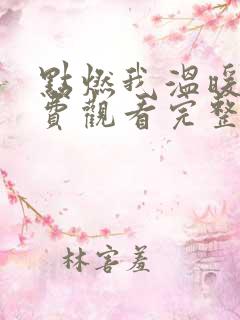 點燃我溫暖
費觀看完整
林害羞